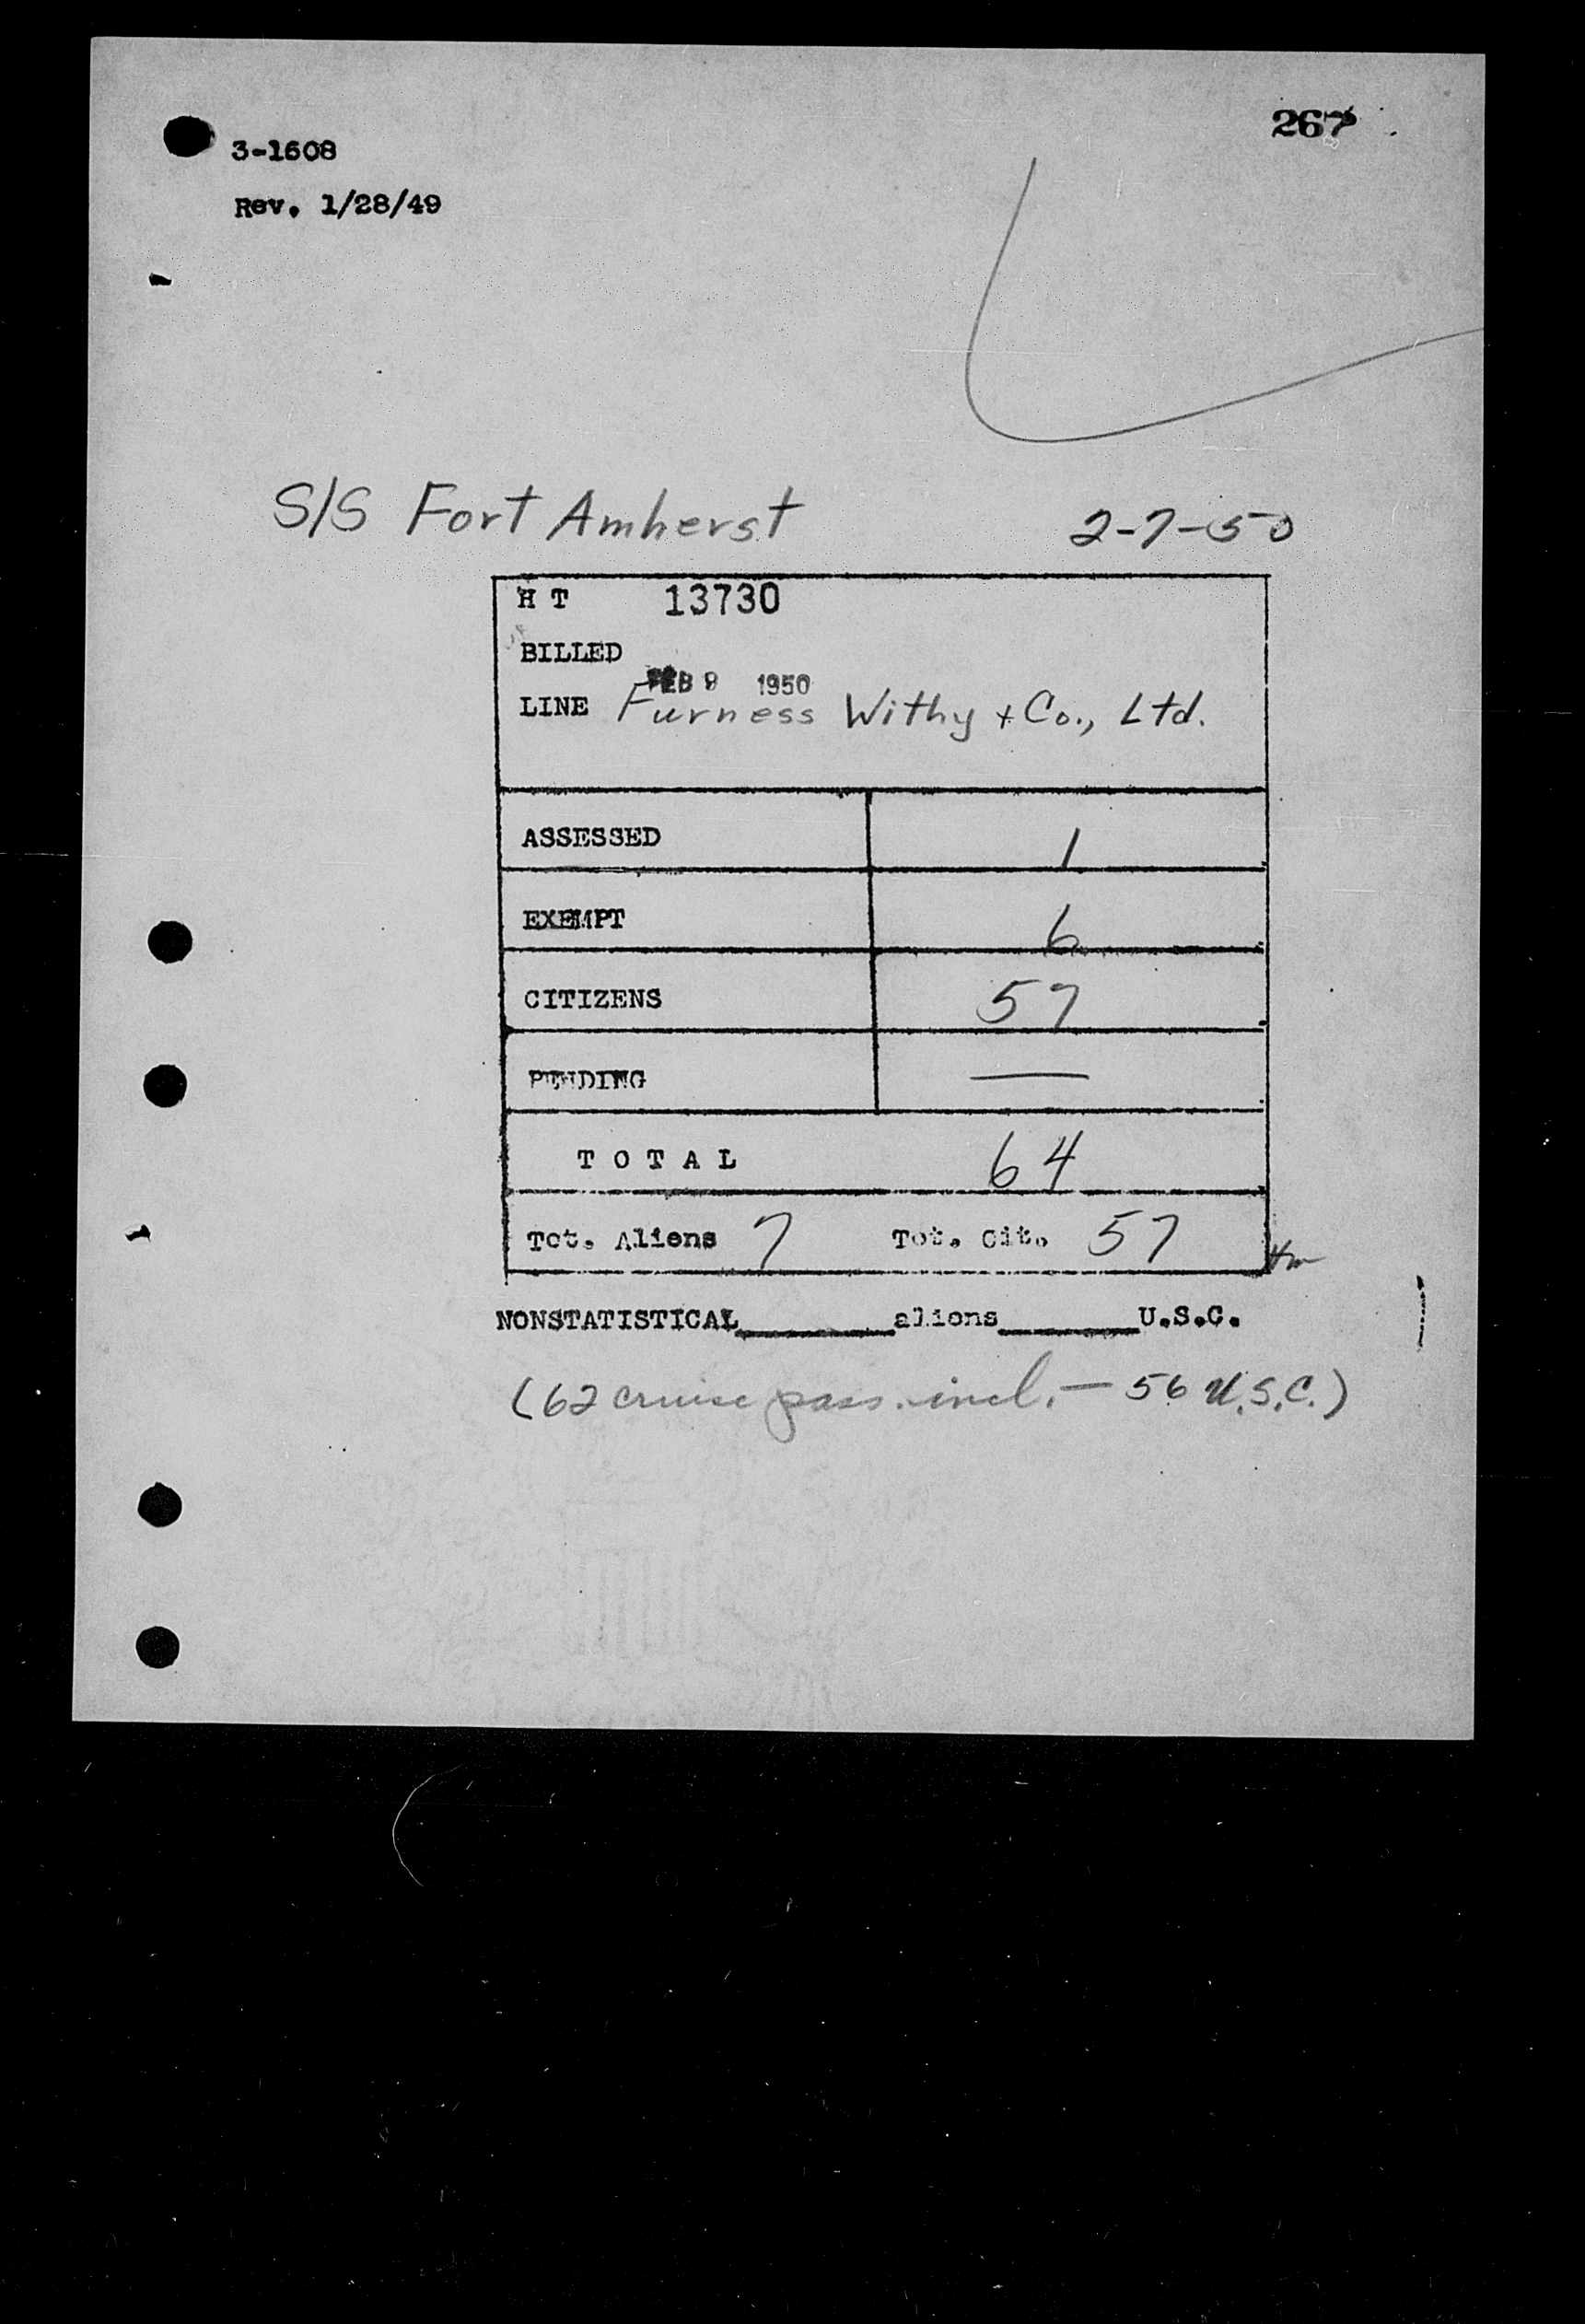 267
3-1608
Rev. 1/28/49
S/S Fort Amherst 2-7-50
H T 13730
BILLED
FEB 9 1950
LINE Furness Withy + Co., Ltd.
ASSESSED 1
EXEMPT 6
CITIZENS 57
PENDING —
T O T A L 64
Tot. Aliens 7 Tot. Cit. 57
NONSTATISTICAL________aliens_______U.S.C.
(62 cruise pass. incl. — 56 U.S.C.)